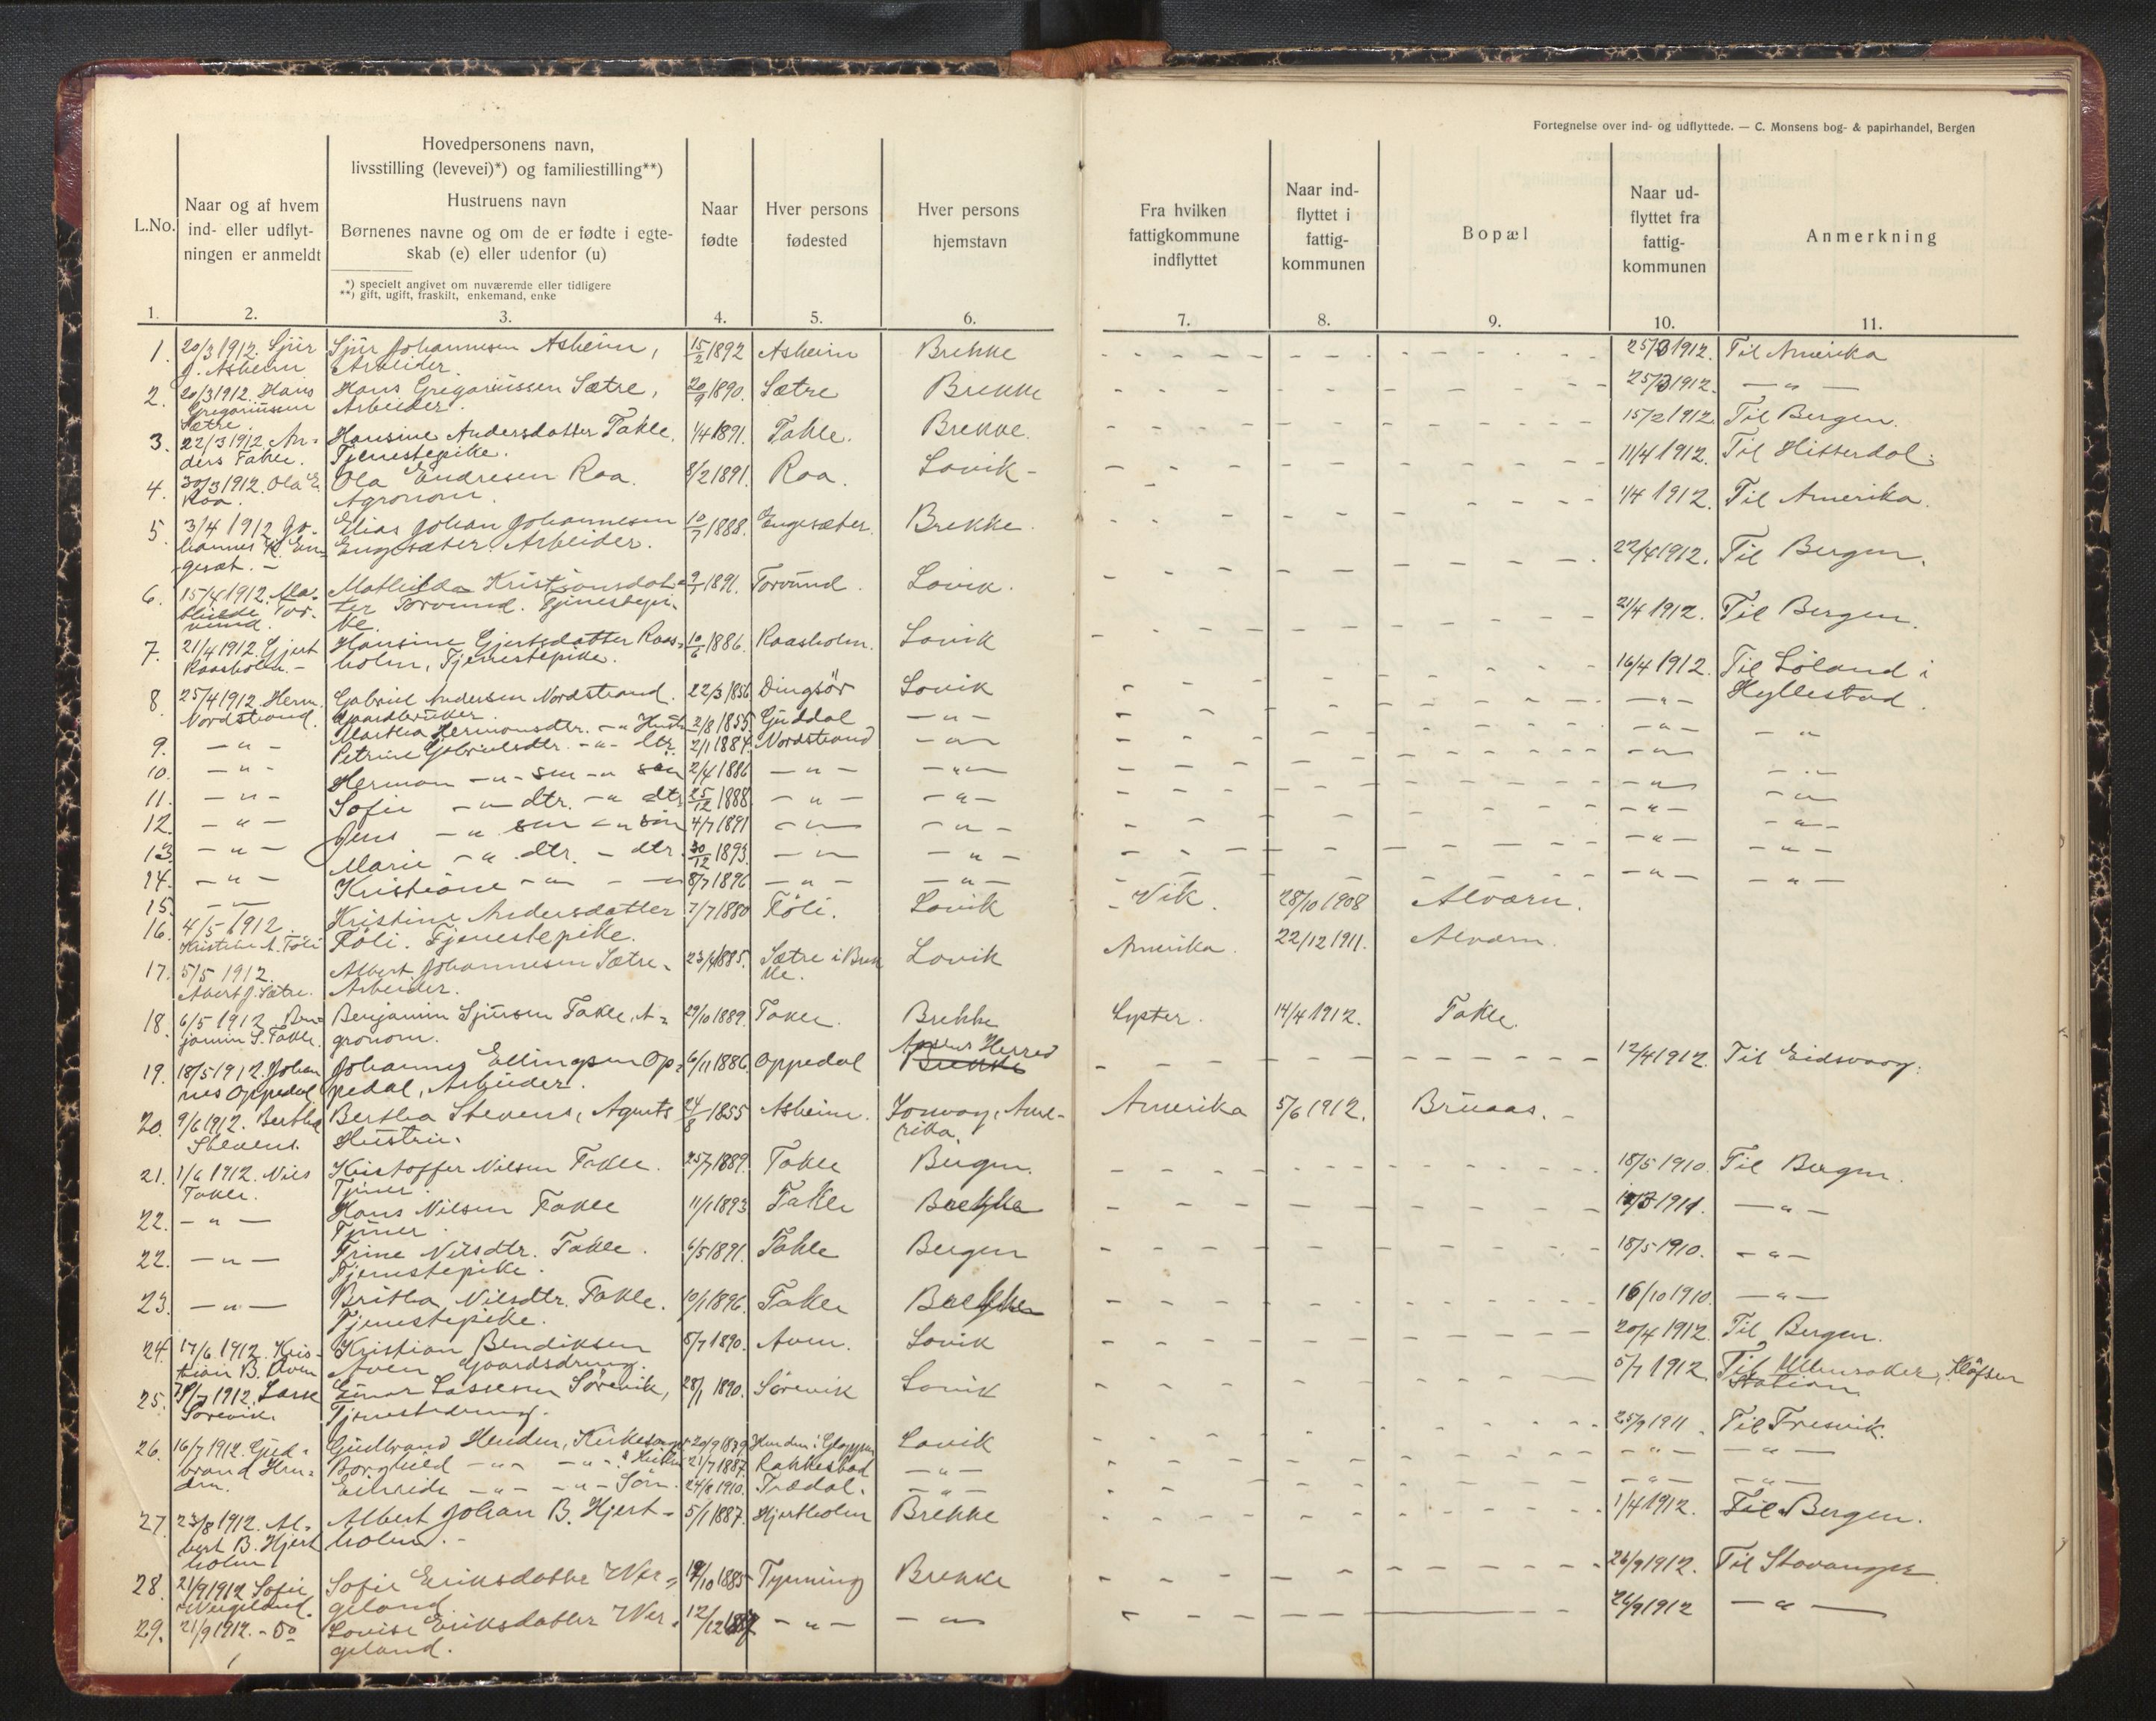 Fortegnelse over ind- og udflyttede. — C. Monsens bog- & papirhandel, Bergen
L.No.
Naar og af hvem ind- eller udflyt-ningen er anmeldt
Hovedpersonens navn,
livsstilling (levevei)*) og familiestilling**)
Hustruens navn
Børnenes navne og om de er fødte i egte-
skab (e) eller udenfor (u)
*) specielt angivet om nuværende eller tidligere
**) gift, ugift, fraskilt, enkemand, enke
Naar fødte
Hver persons fødested
Hver persons hjemstavn
Fra hvilken fattigkommune indflyttet
Naar ind-flyttet i fattig-kommunen
Bopæl
Naar ud-flyttet fra fattig-kommunen
Anmerkning
1. 2. 3. 4. 5. 6. 7. 8. 9. 10. 11.
1. 20/3 1912. Sjur Sjur Johannesen Asheim, 15/2 1892 Asheim Brekke 25/3 1912. Til Amerika
J. Asheim Arbeider.
2. 20/3 1912. Hans Hans Gregoriussen Sætre, 20/9 1890. Sætre Brekke 25/3 1912. — " —
Gregoriussen Arbeider.
Sætre.
3. 22/3 1912. An- Hansine Andersdatter Takle. 1/4 1891. Takle. Brekke. 15/2 1912. Til Bergen.
ders Takle. Tjenestepike.
4. 30/3 1912. Ola E. Ola Endresen Raa. 8/2 1891. Raa. Lavik - 11/4 1912. Til Hitterdal.
Raa. Agronom.
5. 3/4 1912 Jo- Elias Johan Johannesen 10/7 1888. Engesæter. Brekke. 1/4 1912. Til Amerika.
hannes K. En- Engesæter. Arbeider.
gesæt. -
6. 15/4 1912. Ma- Mathilda Kristiansdat- 1891. Torvund. Lavik. 22/4 1912. Til Bergen.
thilde Tor- ter Torvund. Tjenestepi-
vund. ke.
7. 21/4 1912. Gjert Hansine Gjertsdatter Raas- 10/6 1886. Raasholm. Lavik 21/4 1912. Til Bergen.
Raasholm. - holm, Tjenestepike.
8. 25/4 1912. Herm. Gabriel Andersen Nordstrand. 22/3 1856 Dingsör Lavik 16/4 1912. Til Löland i
Nordstrand. Gaardbruker. Hyllestad.
9. — " — Martha Hermansdtr. — " Hustr 2/8 1855 Guddal — " — — " —
10. — " — Petrine Gabrielsdtr. — " — dtr. 2/1 1884. Nordstrand — " — — " —
11. — " — Herman — " — sen — " sön 2/4 1886 — " — — " — — " —
12. — " — Sofie — " — dtr. — " dtr 25/12 1888 — " — — " — — " —
13. — " — Jens — " sen — " sön 4/7 1891 — " — — " — — " —
14. — " — Marie — " dtr. — dtr. 30/12 1893. — " — — " — — " —
15. — " — Kristiane — " — 8/7 1896 — " — — " — — " —
16. 4/5 1912. Kristine Andersdatter 7/7 1880 Föli. Lavik Vik. 28/10 1908 Alværn.
Kristine A. Föli Föli. Tjenestepike.
17. 5/5 1912. Albert Johannesen Sætre. 23/4 1885. Sætre i Brek Lavik Amerika. 22/12 1911. Alværn.
Albert J. Sætre. Arbeider. ke.
18. 6/5 1912 Ben- Benjamin Sjursen Takle, A- 29/10 1889. Takle. Brekke Lyster. 14/4 1912. Takle.
jamin S. Takle. gronom.
19. 18/5 1912. Johan Johannes Ellingsen Op- 6/11 1886. Oppedal Herred 12/4 1912. Til Eidsvaag.
nes Oppedal pedal, Arbeider. Brekke
20. 9/6 1912. Bertha Bertha Stevens, Agents 24/8 1855 Asheim. Ame- Amerika 5/6 1912. Bruaas. -
Stevens. Hustru. rika.
21. 1/6 1912. Nils Kristoffer Nilsen Takle. 25/7 1889. Takle Bergen. 18/5 1910. Til Bergen.
Takle. Tjener.
22. — " — Hans Nilsen Takle 11/1 1893 Takle Brekke 1911. — " —
Tjener
22. — " — Trine Nilsdtr. Takle. 6/5 1891. Takle Bergen 18/5 1910. — " —
Tjenestepike.
23. — " — Britha Nilsdtr. Takle. 10/1 1896. Takle Brekke 16/10 1910. — " —
Tjenestepike.
24. 17/6 1912. Kris- Kristian Bendiksen 8/7 1890. Aven. Lavik 20/4 1912. Til Bergen.
tian B. Aven Aven Gaardsdreng.
25. 1912. Lasse Einar Lassesen Sörevik, 28/1 1890. Sörevik Lavik 5/7 1912. Til Ullensaker, Klöfsen
Sörevik. Tjenestedreng. Station
26. 16/7 1912. Gud- Gudbrand Henden, Kirkesanger 20/9 1879 Henden i Gloppen Lavik 25/9 1911. Til Fresvik.
brand Hen- Borghild — " — — " — s Hustru 21/7 1887. Rakkestad — " — — " — — " —
den. — " — — " — Sön. 24/8 1910. Trædal. — " — — " — — " —
27. 23/8 1912. Al- Albert Johan B. Hjert- 5/1 1887. Hjertholm Brekke 1/4 1912. Til Bergen.
bert B. Hjert holm. -
holm
28. 21/9 1912 Sofie Sofie Eriksdatter Wer- 19/10 1885 Tynning Brekke 26/9 1912. Til Stavanger.
Wergeland. geland
29. 21/9 1912. - Do Lovise Eriksdatter Wer- 12/12 — " — — " — 26/9 1912 — " —
geland.